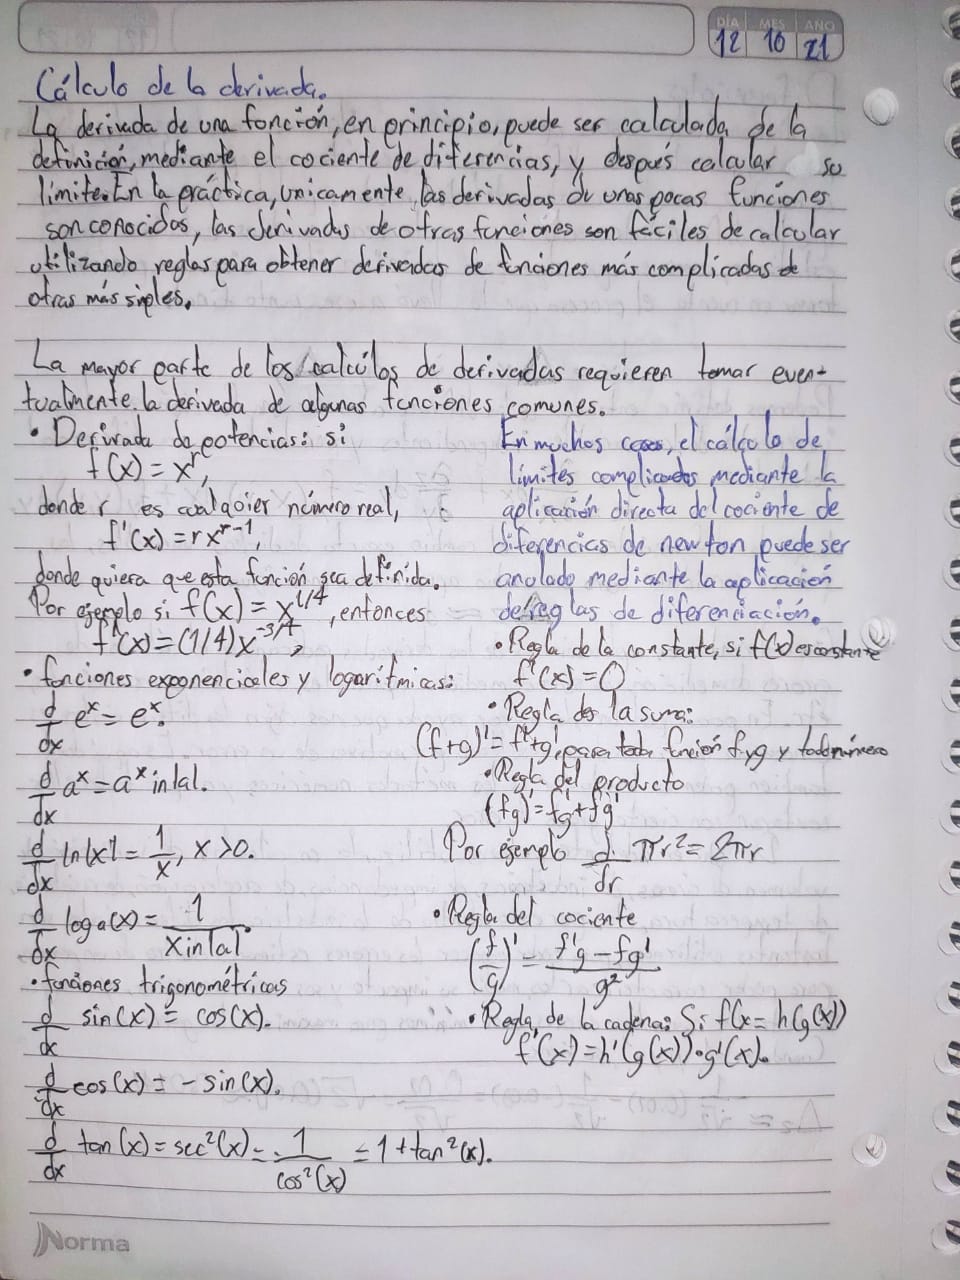 DÍA MES AÑO
12 10 21
Cálculo de la derivada.
La derivada de una función, en principio, puede ser calculada de la
definición, mediante el cociente de diferencias, y después calcular su
límite. En la práctica, unicamente, las derivadas de unas pocas funciones
son conocidas, las derivadas de otras funciones son fáciles de calcular
utilizando reglas para obtener derivadas de funciones más complicadas de
otras más simples.
La mayor parte de los calculos de derivadas requieren tomar even-
tualmente la derivada de algunas funciones comunes.
• Derivada de potencias: si
f(x) = x^r,
donde r es cualquier número real,
f'(x) = rx^{r-1},
donde quiera que esta función sea definida.
Por ejemplo si f(x) = x^{1/4}, entonces
f'(x) = (1/4)x^{-3/4},
• funciones exponenciales y logarítmicas:
d/dx e^x = e^x.
d/dx a^x = a^x in|a|.
d/dx ln|x| = 1/x, x > 0.
d/dx log a(x) = 1/(x in|a|).
• funciones trigonométricas
d/dx sin(x) = cos(x).
d/dx cos(x) = - sin(x).
d/dx tan(x) = sec²(x) = 1/cos²(x) = 1 + tan²(x).
En muchos casos, el cálculo de
límites complicados mediante la
aplicación directa del cociente de
diferencias de newton puede ser
anulado mediante la aplicación
de reglas de diferenciación.
• Regla de la constante, si f(x) es constante
f'(x) = 0
• Regla des la suma:
(f+g)' = f'+g', para toda función f y g y todo número
• Regla del producto
(fg)' = f'g + fg'
Por ejemplo d/dr πr² = 2πr
• Regla del cociente
(f/g)' = (f'g - fg')/g²
• Regla de la cadena: Si f(x = h(g(x))
f'(x) = h'(g(x)) • g'(x).
Norma